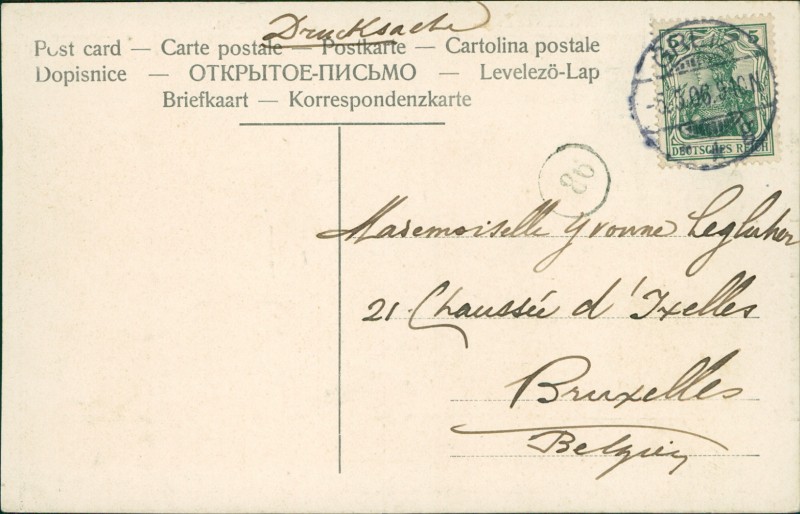 Drucksache
Post card — Carte postale — Postkarte — Cartolina postale
Dopisnice — ОТКРЫТОЕ-ПИСЬМО — Levelezö-Lap
Briefkaart — Korrespondenzkarte
5
DEUTSCHES REICH
86
Mademoiselle Yvonne
21 Chaussée d'Ixelles
Bruxelles
Belgien